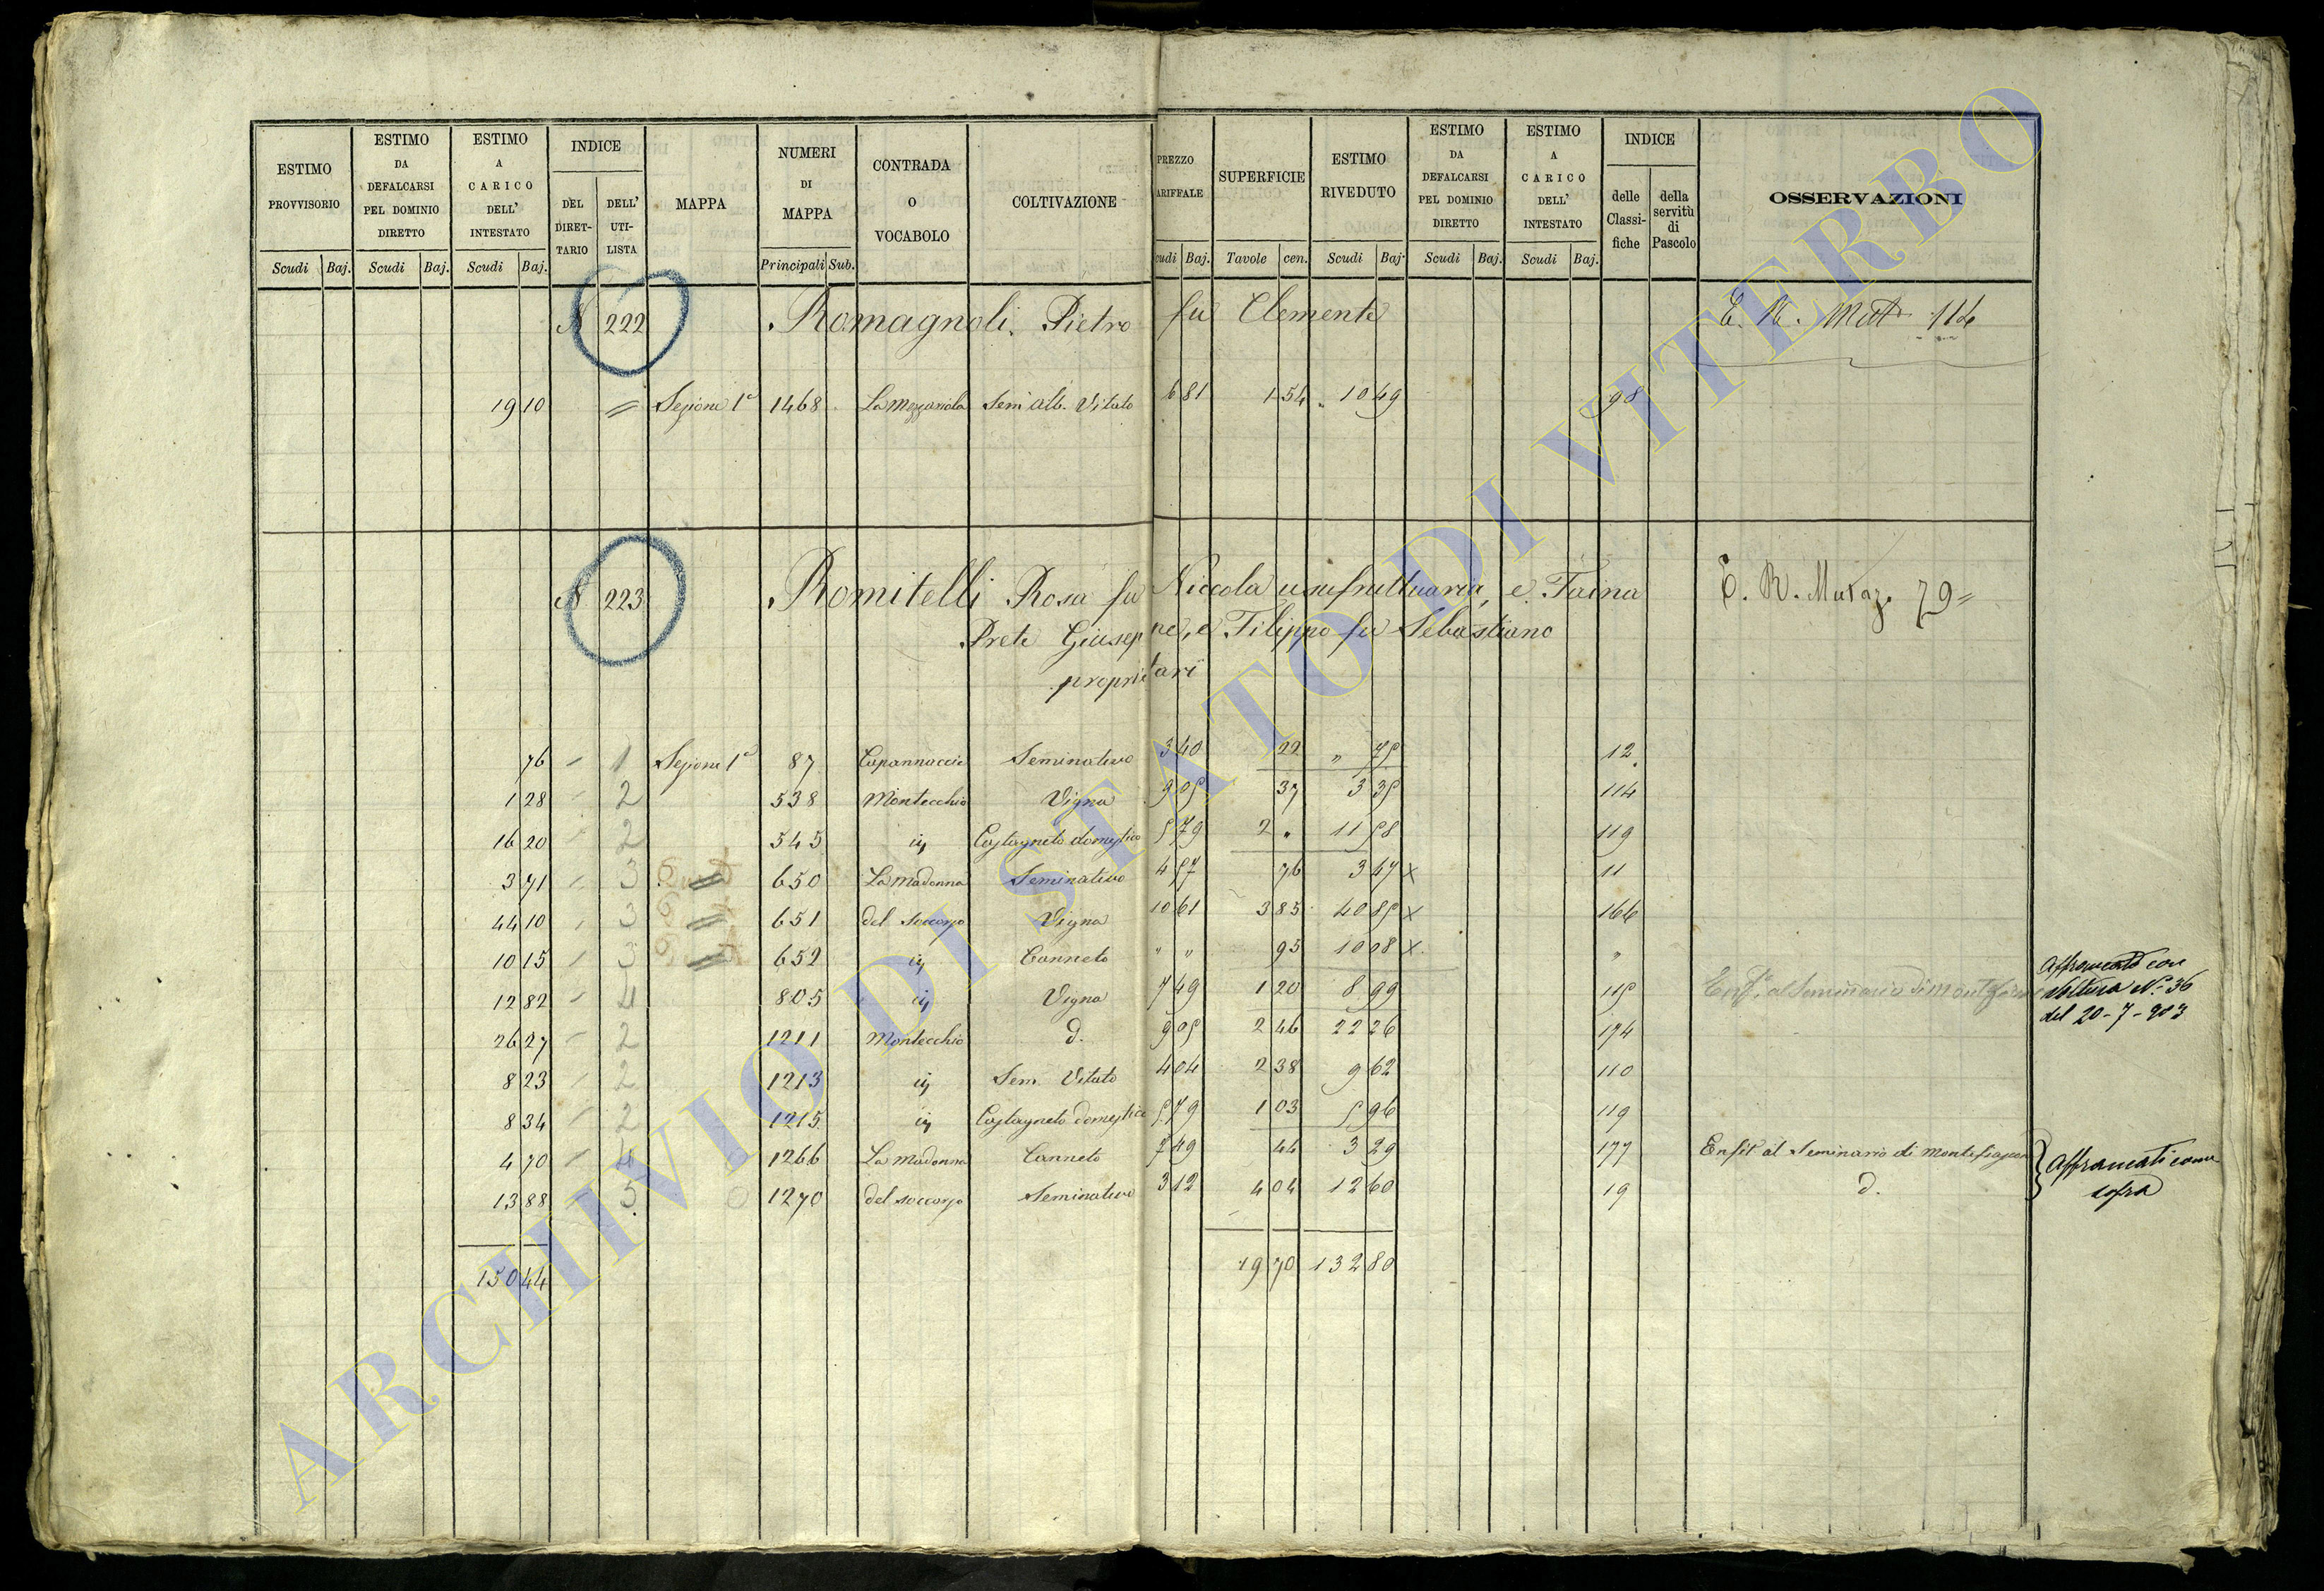 ESTIMO PROVVISORIO | ESTIMO DA DEFALCARSI PEL DOMINIO DIRETTO | ESTIMO A CARICO DELL' INTESTATO | INDICE | MAPPA | NUMERI DI MAPPA | CONTRADA O VOCABOLO | COLTIVAZIONE | PREZZO ARIFFALE | SUPERFICIE | ESTIMO RIVEDUTO | ESTIMO DA DEFALCARSI PEL DOMINIO DIRETTO | ESTIMO A CARICO DELL' INTESTATO | INDICE | OSSERVAZIONI
DEL DIRET-TARIO | DELL' UTI-LISTA | delle Classi-fiche | della servitù di Pascolo
Scudi | Baj. | Scudi | Baj. | Scudi | Baj. | Principali | Sub. | udi | Baj. | Tavole | cen. | Scudi | Baj. | Scudi | Baj. | Scudi | Baj.
N 222 Romagnoli Pietro fu Clemente
19 10 Sezione 1ª 1468 Sem alb. Vitato 6 81 1 54 10 49 98
N 223 Romitelli Rosa fu Niccola usufruttuaria, e Faina E. R. Mutaz. 79
Prete Giuseppe, e Filippo fu Sebastiano
proprietari
76 1 Sezione 1ª 87 Capannaccie Seminativo 3 40 22 " 75 12
1 28 2 538 Montecchio Vigna 9 05 37 3 35 114
16 20 2 545 iỹ Castagneto domestico 5 79 2 " 11 58 119
3 71 3 650 La Madonna Seminativo 4 57 76 3 47 x 11
44 10 3 651 del soccorso Vigna 10 61 3 85 40 85 x 166
10 15 3 652 iỹ Canneto " " 95 10 08 x "
12 82 4 805 iỹ Vigna 7 49 1 20 8 99 115 Enf. al Seminario di Montefias
Affrancato con
Voltura N. 36
del 20-7-903
26 27 2 1211 Montecchio d. 9 05 2 46 22 26 174
8 23 2 1213 iỹ Sem. Vitato 4 04 2 38 9 62 110
8 34 2 1215 iỹ Castagneto domestico 5 79 1 03 5 96 119
4 70 4 1266 La Madonna Canneto 7 49 44 3 29 177 Enfit. al Seminario di Montefiascon
13 88 5 1270 del soccorso Seminativo 3 12 4 04 12 60 19 d.
Affrancati come
sopra
150 44 19 70 132 80
ARCHIVIO DI STATO DI VITERBO